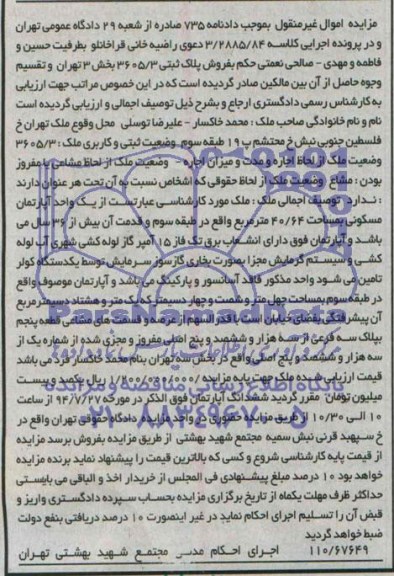 مزایده اموال غیرمنقول بموجب دادنامه ۷۳۵ صادره از شعبه ۲۹ دادگاه عمومی تهران
و در پرونده اجرایی کلاسه ۳/۲۸۸۵/۸۴ دعوی راضیه خانی قراخانلو بطرفیت حسین و
فاطمه و مهدی - صالحی نعمتی حکم بفروش پلاک ثبتی ۳۶۰۵/۳ بخش ۳ تهران و تقسیم
وجوه حاصل از آن بین مالکین صادر گردیده است که در این خصوص مراتب جهت ارزیابی
به کارشناس رسمی دادگستری ارجاع و بشرح ذیل توصیف اجمالی و ارزیابی گردیده است
نام و نام خانوادگی صاحب ملک : محمد خاکسار - علیرضا توسلی محل وقوع ملک تهران خ
فلسطین جنوبی نبش خ محتشم پ ۱۹ طبقه سوم وضعیت ثبتی و کاربری ملک : ۳۶۰۵/۳
وضعیت ملک از لحاظ اجاره و مدت و میزان اجاره - وضعیت ملک از لحاظ مشاعی یا مفروز
بودن : مشاع وضعیت ملک از لحاظ حقوقی که اشخاص نسبت به آن تحت هر عنوان دارند
: ندارد توصیف اجمالی ملک : ملک مورد کارشناسی عبارتست از یک واحد آپارتمان
مسکونی بمساحت ۴۰/۶۴ مترمربع واقع در طبقه سوم و قدمت آن بیش از ۳۶ سال می
باشد و آپارتمان فوق دارای انشعاب برق تک فاز ۱۵ آمپر گاز لوله کشی شهری آب لوله
کشی و سیستم گرمایش مجزا بصورت بخاری گازسوز سرمایش توسط یکدستگاه کولر
تامین می شود واحد مذکور فاقد آسانسور و پارکینگ می باشد و آپارتمان موصوف واقع
در طبقه سوم بمساحت چهل متر و شصت و چهار دسیمتر که یک متر و هشتاد دسیمترمربع
آن پیشرفتگی بفضای خیابان است با قدرالسهم از عرصه و قسمت های مشاعی قطعه پنجم
بپلاک سه فرعی از سه هزار و ششصد و پنج اصلی مفروز و مجزی شده از شماره یک از
سه هزار و ششصد و پنج اصلی واقع در بخش سه تهران بنام محمد خاکسار فرد می باشد
قیمت ارزیابی شده ملک جهت پایه مزایده ریال یکصد و بیست
میلیون تومان مقرر گردید ششدانگ آپارتمان فوق الذکر در مورخه ۹۴/۷/۲۷ از ساعت
۱۰ الی ۱۰/۳۰ از طریق مزایده حضوری در واحد مزایده دادگاه حقوقی تهران واقع در
خ سپهبد قرنی نبش سمیه مجتمع شهید بهشتی از طریق مزایده بفروش برسد مزایده
از قیمت پایه کارشناسی شروع و کسی که بالاترین قیمت را پیشنهاد نماید برنده مزایده
خواهد بود ۱۰ درصد مبلغ پیشنهادی فی المجلس از خریدار اخذ و الباقی می بایستی
حداکثر ظرف مهلت یکماه از تاریخ برگزاری مزایده بحساب سپرده دادگستری واریز و
قبض آن را تسلیم اجرای احکام نماید در غیر اینصورت ۱۰ درصد دریافتی بنفع دولت
ضبط خواهد گردید
۱۱۰/۶۷۶۴۹ اجرای احکام مدنی مجتمع شهید بهشتی تهران
پایگاه اطلاع رسانی مناقصه و مزایده
۰۲۱-۸۸۳۴۹۶۷۰